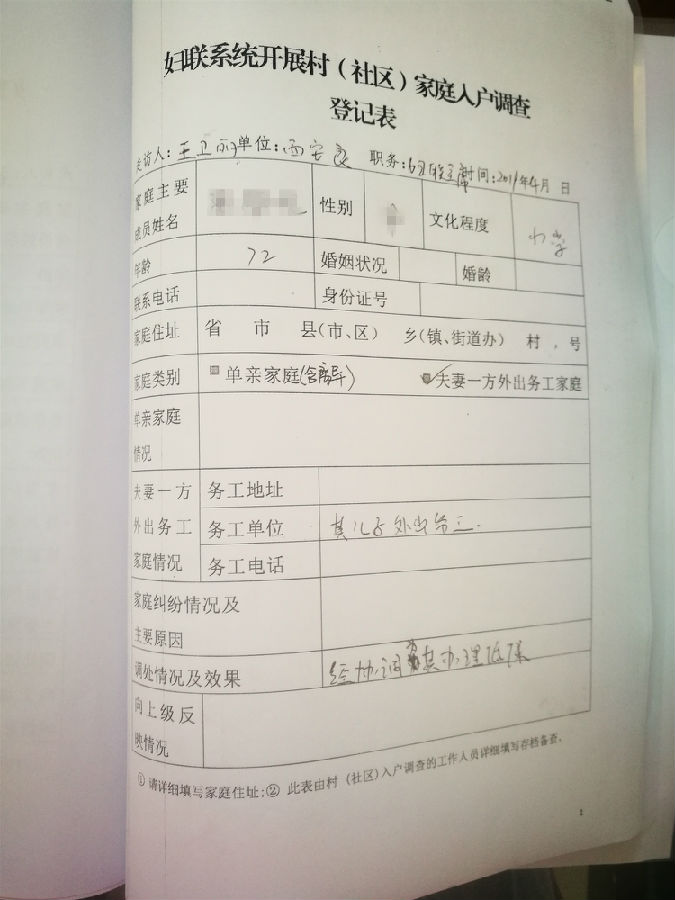 妇联系统开展村（社区）家庭入户调查
登记表
访人：王卫 单位：西安 职务： 时间：2019年4月 日
家庭主要成员姓名 性别 文化程度 小学
年龄 72 婚姻状况 婚龄
联系电话 身份证号
家庭住址 省 市 县(市、区) 乡(镇、街道办) 村 . 号
家庭类别 单亲家庭(含离异) 夫妻一方外出务工家庭
单亲家庭
情况
夫妻一方 务工地址
外出务工 务工单位 其儿子外出务工.
家庭情况 务工电话
家庭纠纷情况及
主要原因
调处情况及效果 经协调为其办理低保
向上级反
映情况
① 请详细填写家庭住址;② 此表由村（社区)入户调查的工作人员详细填写存档备查。
1